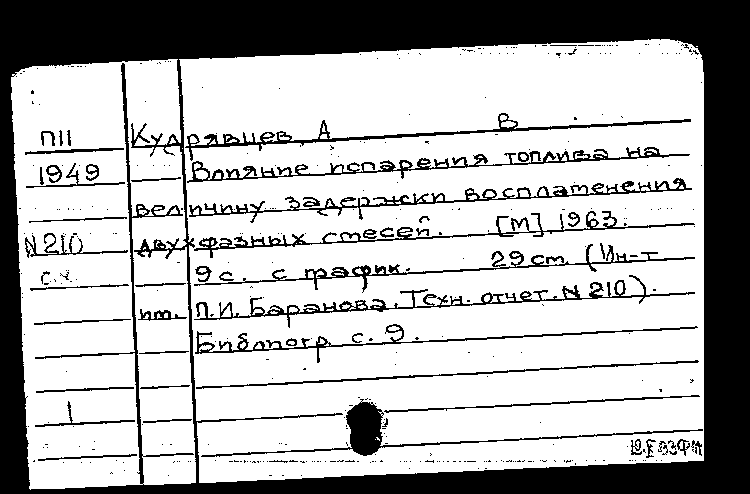 П11 Кудрявцев, А В
1949 Влияние испарения топлива на
величину задержки воспламенения
N210 двухфазных смесей. [М]. 1963.
с.х. 9 с. с график. 29 cm. (Ин-т
им. П.И. Баранова. Техн. отчет. N 210).
Библиогр. с. 9.
1